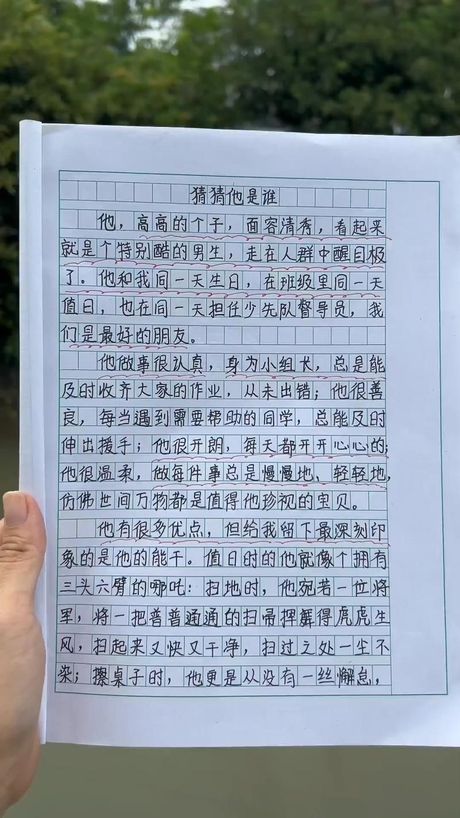 猜猜他是谁
他，高高的个子，面容清秀，看起来
就是个特别酷的男生，走在人群中醒目极
了。他和我同一天生日，在班级里同一天
值日，也在同一天担任少先队督导员，我
们是最好的朋友。
他做事很认真，身为小组长，总是能
及时收齐大家的作业，从未出错；他很善
良，每当遇到需要帮助的同学，总能及时
伸出援手；他很开朗，每天都开开心心的；
他很温柔，做每件事总是慢慢地、轻轻地，
仿佛世间万物都是值得他珍视的宝贝。
他有很多优点，但给我留下最深刻印
象的是他的能干。值日时的他就像个拥有
三头六臂的哪吒：扫地时，他宛若一位将
军，将一把普普通通的扫帚挥舞得虎虎生
风，扫起来又快又干净，扫过之处一尘不
染；擦桌子时，他更是从没有一丝懈怠，